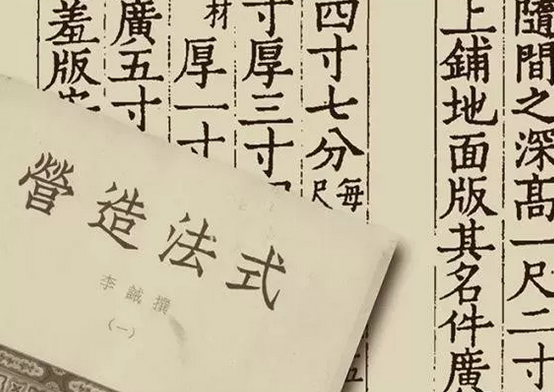 隨間之深髙一尺二寸
上鋪地面版其名件廣
四寸七分每尺
五
寸厚三寸
材厚一寸
廣五寸
羞版
營造法式
李誡撰
（一）